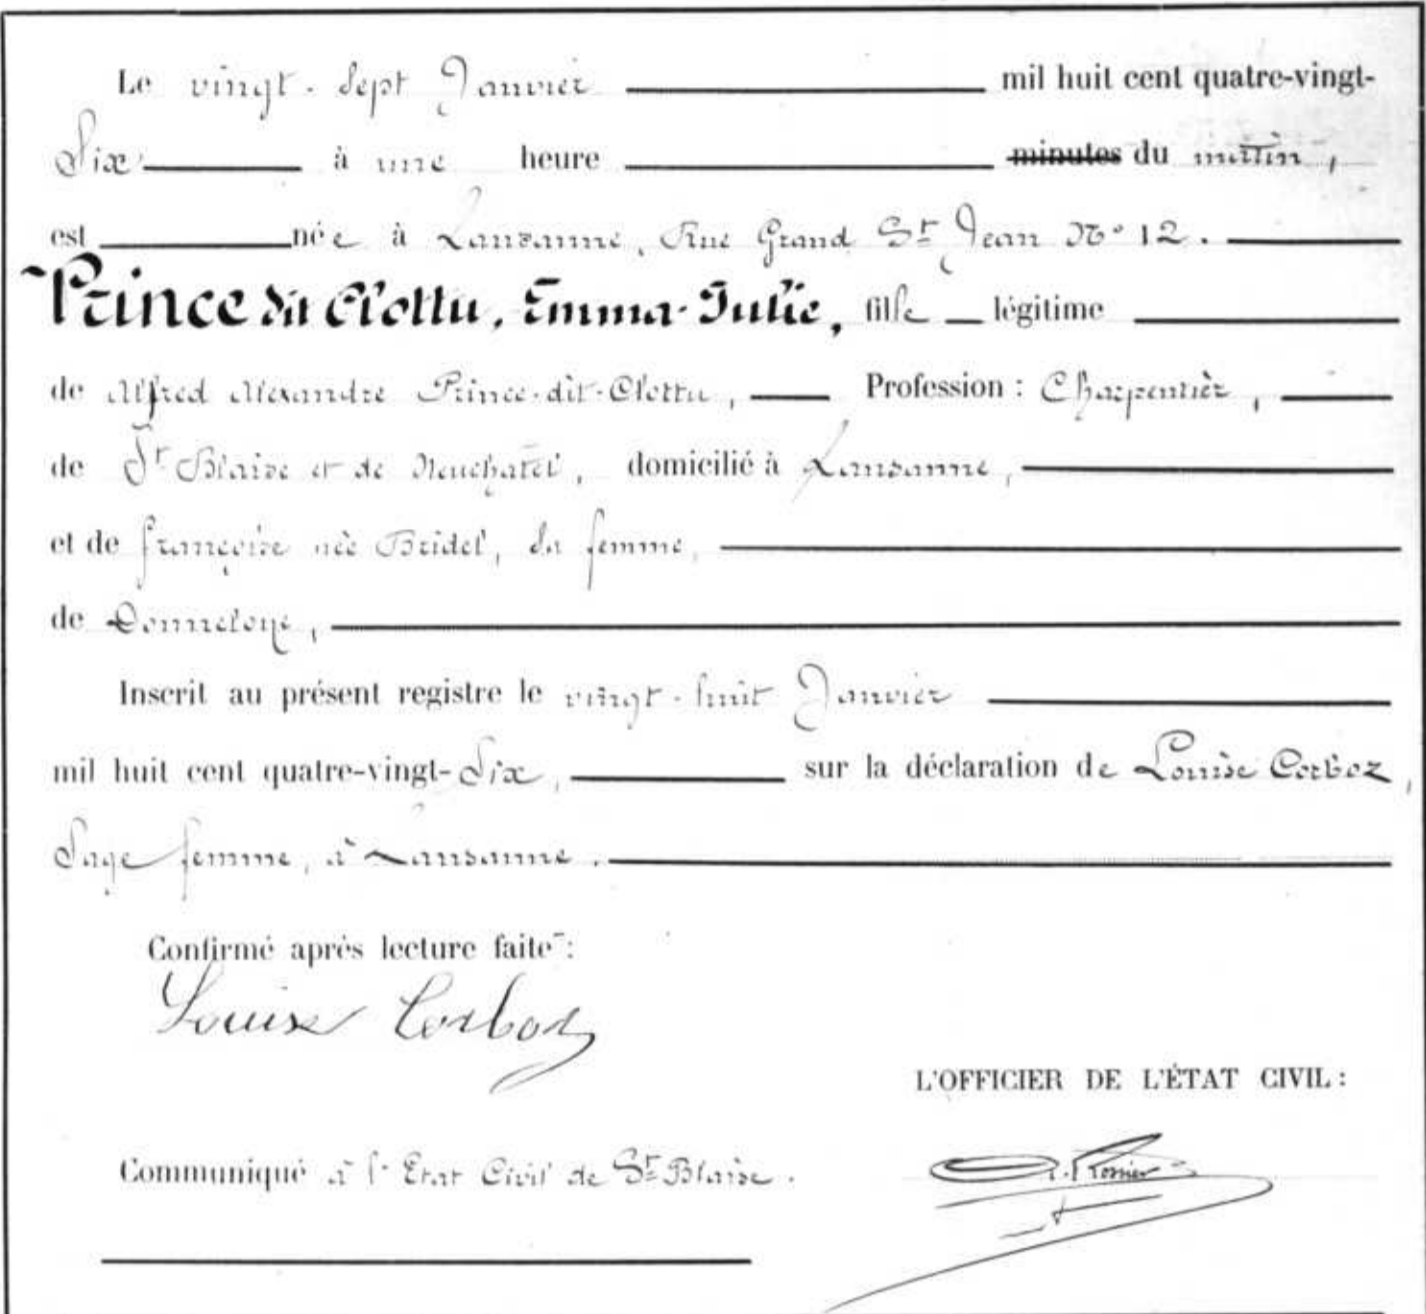 Le vingt-sept Janvier mil huit cent quatre-vingt-
Six à une heure minutes du matin,
est née à Lausanne, Rue Grand St Jean No 12.
Prince dit Clottu, Emma-Julie, fille légitime
de Alfred Alexandre Prince-dit-Clottu, Profession : Charpentier,
de St Blaise et de Neuchatel, domicilié à Lausanne,
et de françoise née Bridel, sa femme,
de Donneloye,
Inscrit au présent registre le vingt-huit Janvier
mil huit cent quatre-vingt-Six, sur la déclaration de Louise Corboz,
Sage femme, à Lausanne.
Confirmé après lecture faite :
Louise Corboz
L'OFFICIER DE L'ÉTAT CIVIL :
Communiqué à l'Etat Civil de St Blaise.